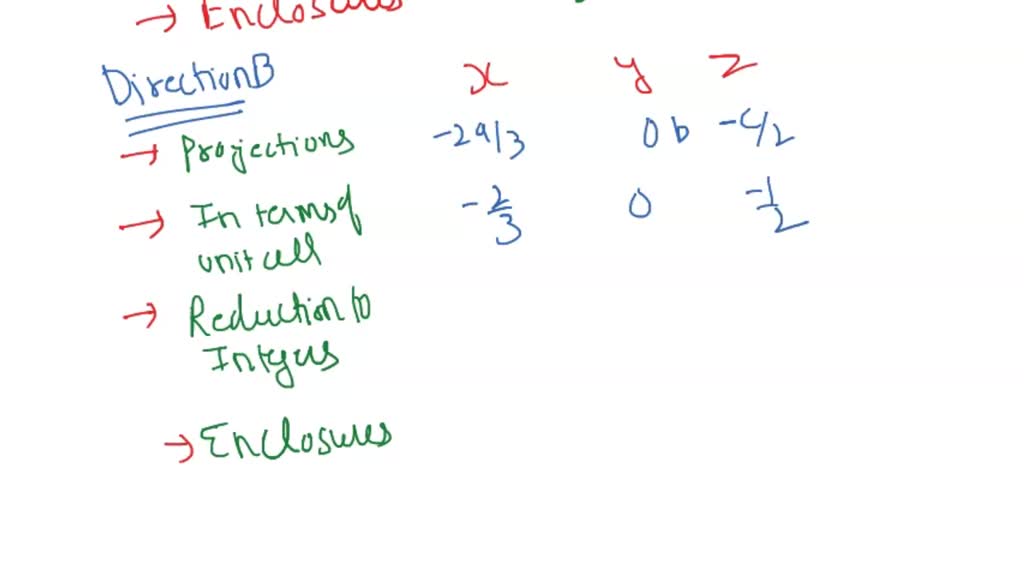 → Enclosures
Direction B x y z
→ Projections -2a/3 0b -c/2
→ In terms of -2/3 0 -1/2
unit cell
→ Reduction to
Integers
→ Enclosures